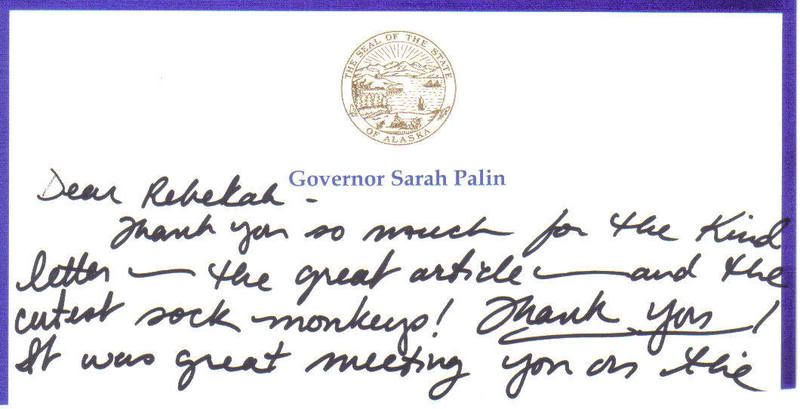 THE SEAL OF THE STATE
OF ALASKA
Governor Sarah Palin
Dear Rebekah -
Thank you so much for the kind
letter — the great article — and the
cutest sock monkeys! Thank you!
It was great meeting you on the